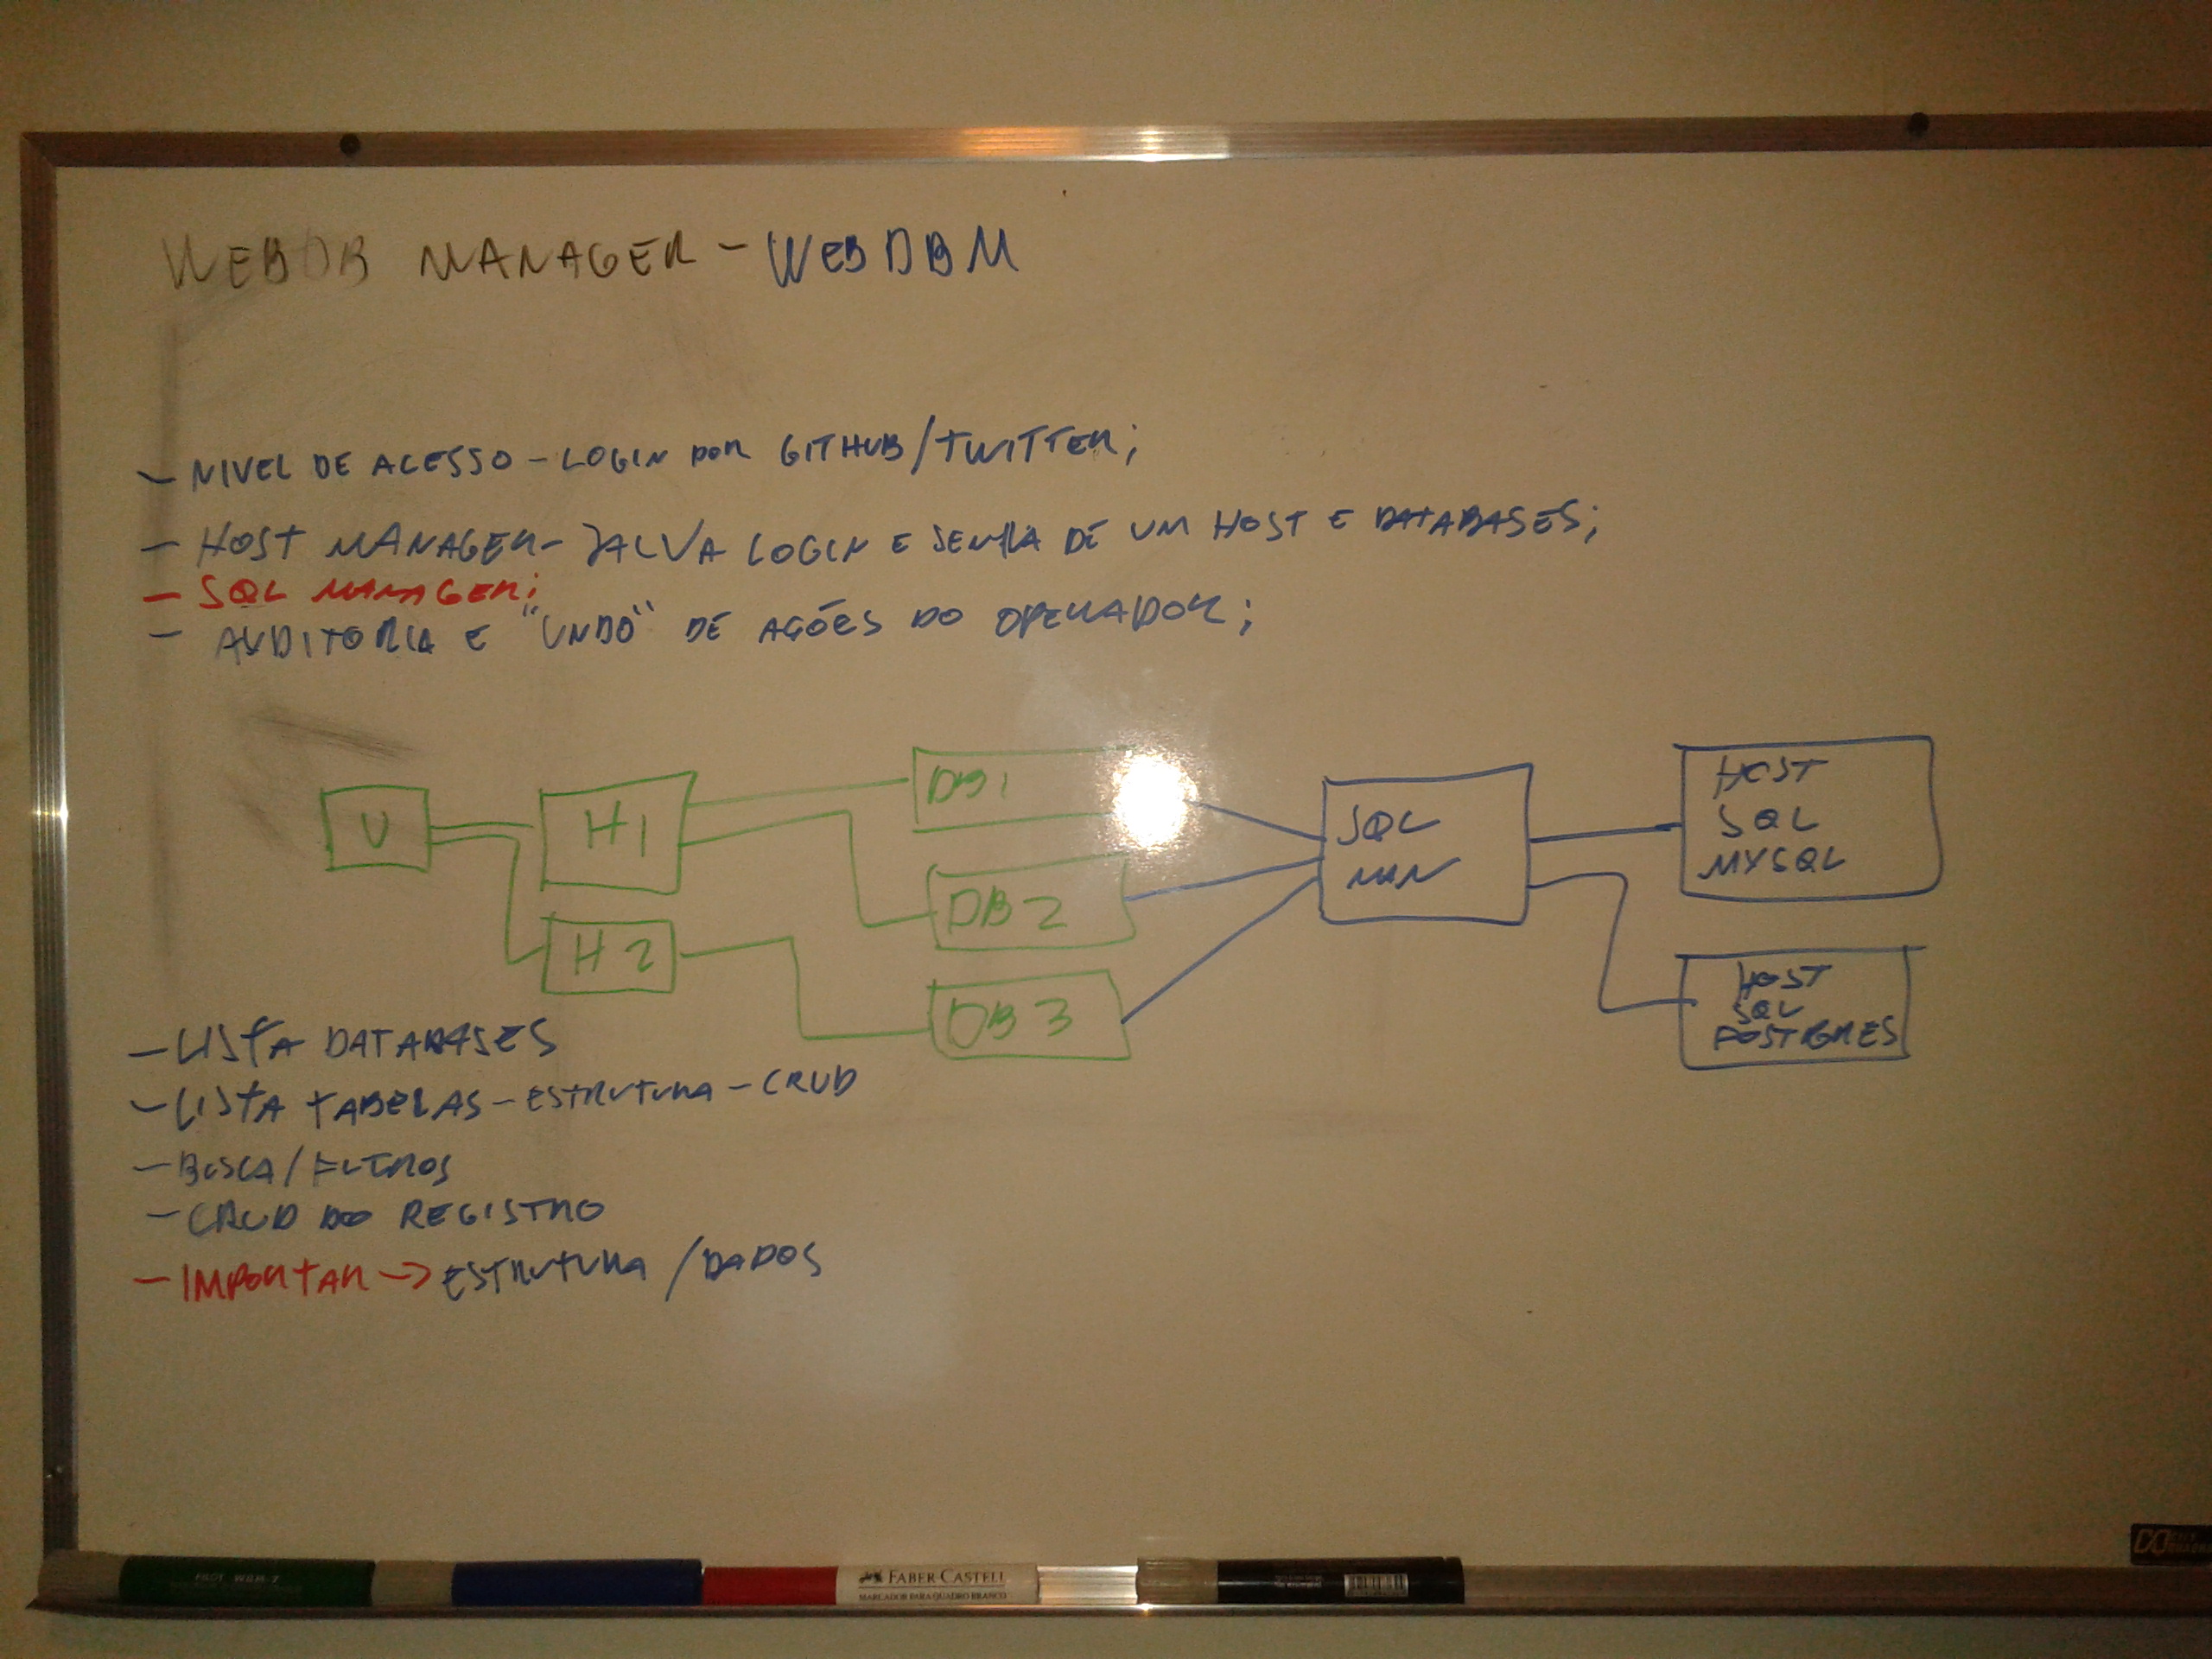 WEBDB MANAGER - WEBDBM
- NIVEL DE ACESSO - LOGIN POR GITHUB/TWITTER;
- HOST MANAGER - SALVA LOGIN E SENHA DE UM HOST E DATABASES;
- SQL MANAGER;
- AUDITORIA E "UNDO" DE AÇÕES DO OPERADOR;
U
H1
H2
DB1
DB2
DB3
SQL
MAN
HOST
SQL
MYSQL
HOST
SQL
POSTGRES
- LISTA DATABASES
- LISTA TABELAS - ESTRUTURA - CRUD
- BUSCA/FILTROS
- CRUD DO REGISTRO
- IMPORTAR -> ESTRUTURA / DADOS
PILOT WBM-7
FABER CASTELL
MARCADOR PARA QUADRO BRANCO